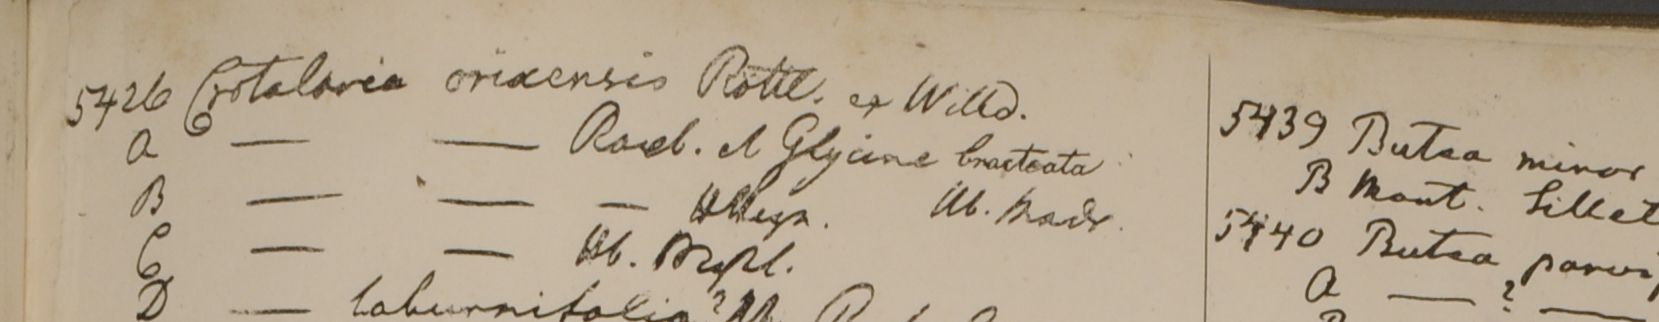 5426 Crotalaria orixensis Rottl. ex Willd.
A — — Roxb. et Glycine bracteata
B — — — HHeyn. Hb. Madr.
C — — Hb.
D — laburnifolia? Hb.
5439 Butea minor
B Mont. Sillet
5440 Butea parvi
A — ? —